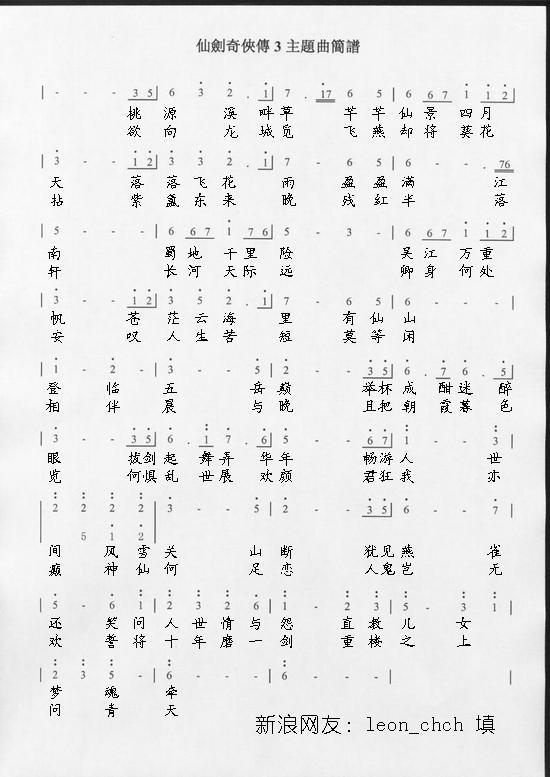 仙劍奇俠傳 3 主題曲簡譜
| - - - 3 5 | 6 3 2 . 1 | 7 . 17 6 5 | 6 6 7 1 1 2 |
桃 源 溪 畔 草 芊 芊 仙 景 四 月
欲 向 龙 城 觅 飞 燕 却 将 葵 花
| 3 - - 1 2 | 3 3 2 . 1 | 7 - 6 5 | 6 - - 76 |
天 落 落 飞 花 雨 盈 盈 满 江
拈 紫 盖 东 来 晚 残 红 半 落
| 5 - - - | 6 6 7 1 7 6 | 5 - 3 - | 6 6 7 1 1 2 |
南 蜀 地 千 里 险 吴 江 万 重
轩 长 河 天 际 远 卿 身 何 处
| 3 - - 1 2 | 3 3 2 . 1 | 7 - 6 5 | 6 - - - |
帆 苍 茫 云 海 里 有 仙 山
安 叹 人 生 苦 短 莫 等 闲
| 1 - 2 - | 3 - - 5 | 2 - - 3 3 5 | 6 . 7 6 . 5 |
登 临 五 岳 巅 举 杯 成 酣 迷 醉
相 伴 晨 与 晚 且 把 朝 霞 暮 色
| 3 - - 3 5 | 6 . 1 7 . 6 | 5 - - 6 7 | 1 - - 3 |
眼 拔 剑 起 舞 弄 华 年 畅 游 人 世
览 何 惧 乱 世 展 欢 颜 君 狂 我 亦
| 2 2 2 2 | 3 - - 5 | 2 - - 3 5 | 6 - - 5 |
5 1 2
间 风 雪 关 山 断 犹 见 燕 雀
癫 神 仙 何 足 恋 人 鬼 岂 无
| 5 - 6 1 | 1 2 2 6 | 1 - 2 3 | 2 - 3 1 |
还 笑 问 人 世 情 与 怨 直 教 儿 女
欢 誓 将 十 年 磨 一 剑 重 楼 之 上
| 2 3 5 - | 6 - - - | 6 - - - | - - - - |
梦 魂 牵
问 青 天
新浪网友：leon_chch 填